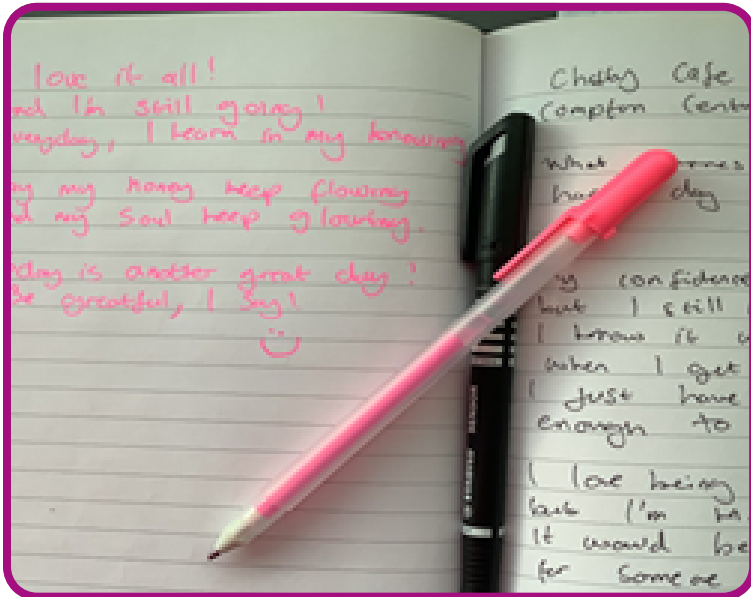 love it all!
nd I'm still going!
veryday, I learn in my knowing
my honey keep flowing
my soul keep glowing.
day is another great day!
Be greatful, I say!
Chatty Cafe
Compton Cent
What
day
y confidence
but I still
I know it
when I get
I just have
enough to
I love being
but I'm
It would be
for someone